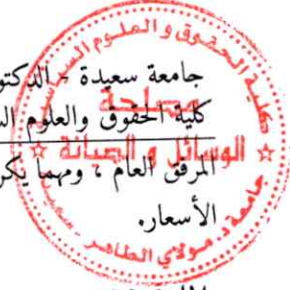 جامعة سعيدة - الدكتو
كلية الحقوق والعلوم ال
المرفق العام ، ومهما يكن
الأسعار.
كلية الحقوق و العلوم السيا
مصلحة
الوسائل و الصيانة
جامعة د. مولاي الطاهر